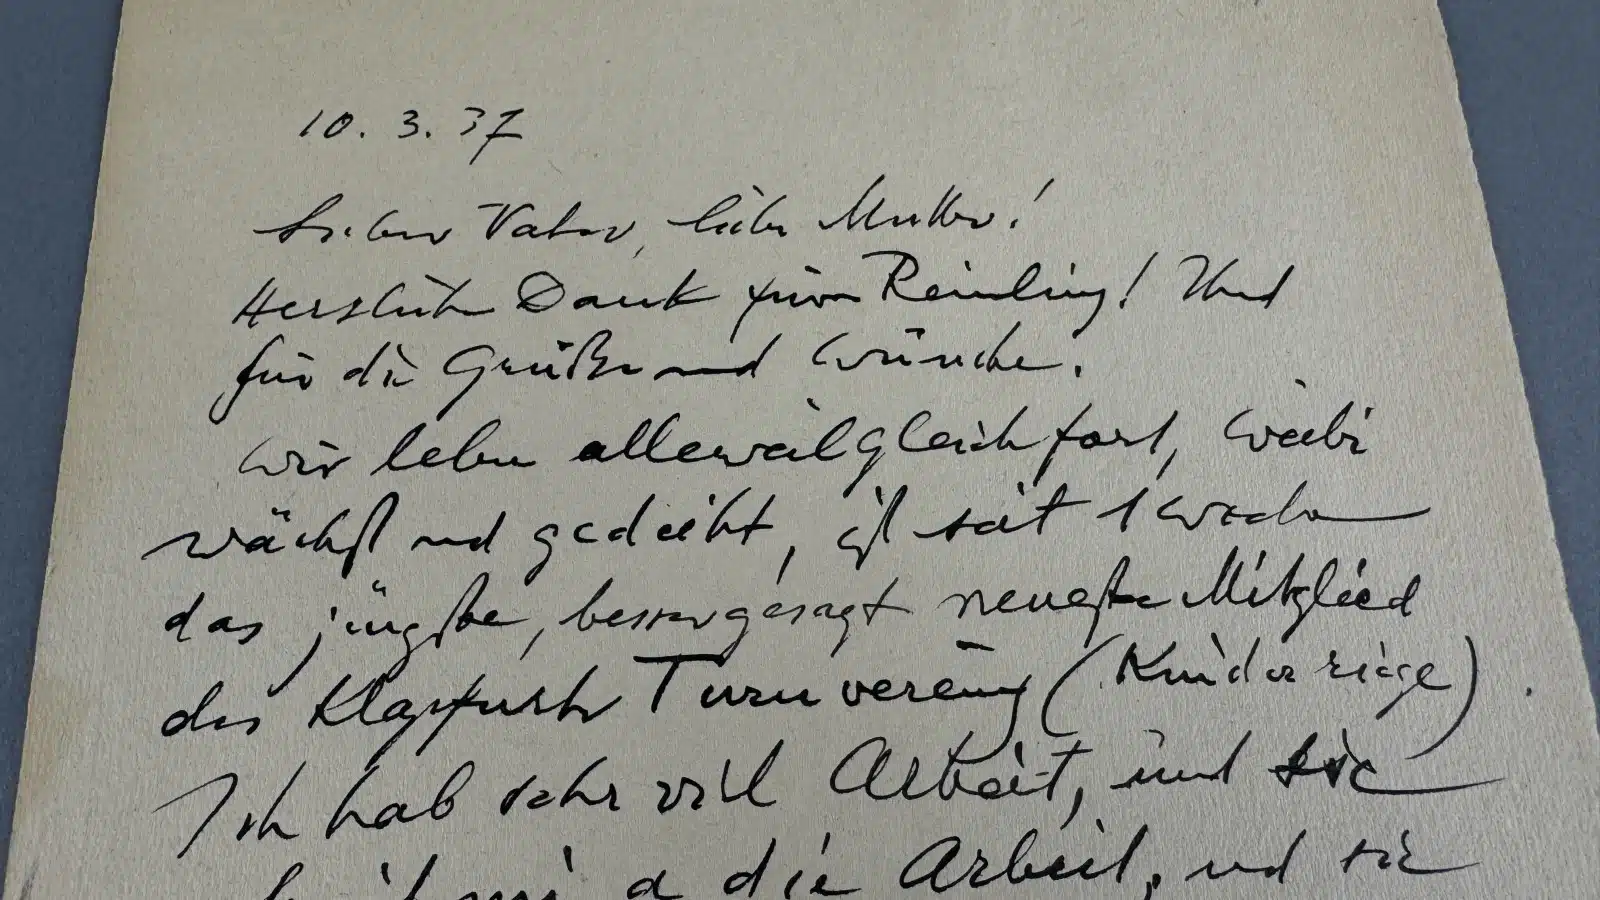 10. 3. 37
Lieber Vater, liebe Mutter!
Herzlichen Dank fürn Reindling! Und
für die Grüße und Wünsche.
Wir leben alleweil gleich fort, Weibi
wächst und gedeiht, ist seit 1 Woche
das jüngste, besser gesagt neueste Mitglied
des Turnvereins (Kinderriege).
Ich hab sehr viel Arbeit, und sie
die Arbeit, und sie